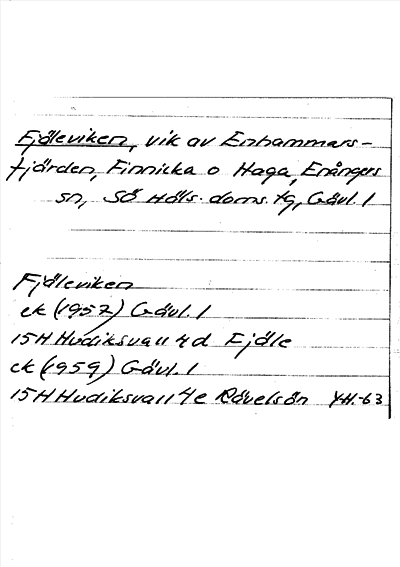 Fjäleviken, vik av Enhammars-
fjärden, Finnicka o Haga, Enångers
sn, Sö Häls. doms. tg, Gävl. l
Fjäleviken
ek (1957) Gävl. l
15H Hudiksvall 4d Fjäle
ek (1959) Gävl. l
15H Hudiksvall 4e Rävelsön YH.-63